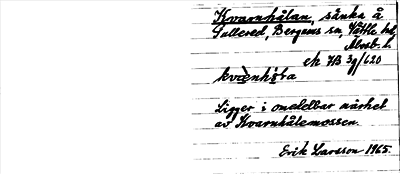 Kvarnhålan, sänka å
Sullered, Bergums sn, Vättle hd,
Älvsb. l.
ek HB 3g/620
kvὲnhòͅra
Ligger i omedelbar närhet
av Kvarnhålemossen.
Erik Larsson 1965.